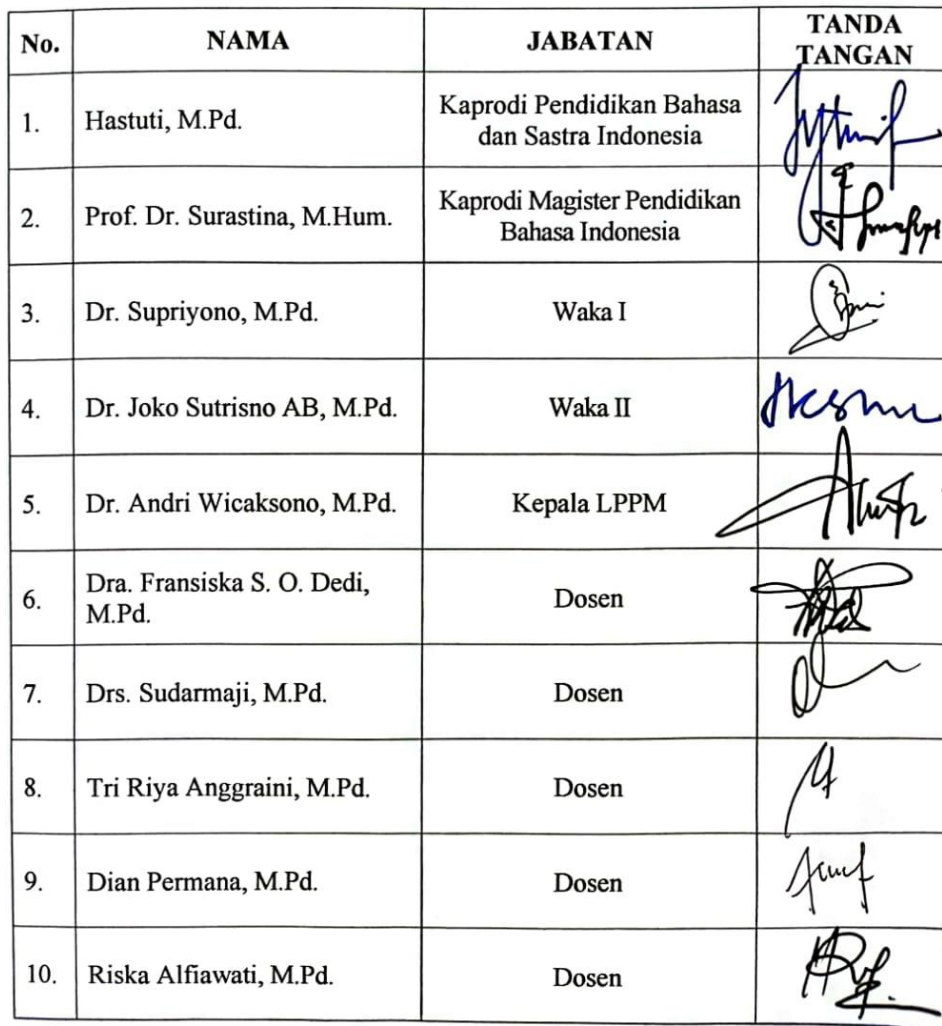 No. NAMA JABATAN TANDA
TANGAN
1. Hastuti, M.Pd. Kaprodi Pendidikan Bahasa
dan Sastra Indonesia
2. Prof. Dr. Surastina, M.Hum. Kaprodi Magister Pendidikan
Bahasa Indonesia
3. Dr. Supriyono, M.Pd. Waka I
4. Dr. Joko Sutrisno AB, M.Pd. Waka II
5. Dr. Andri Wicaksono, M.Pd. Kepala LPPM
6. Dra. Fransiska S. O. Dedi,
M.Pd. Dosen
7. Drs. Sudarmaji, M.Pd. Dosen
8. Tri Riya Anggraini, M.Pd. Dosen
9. Dian Permana, M.Pd. Dosen
10. Riska Alfiawati, M.Pd. Dosen